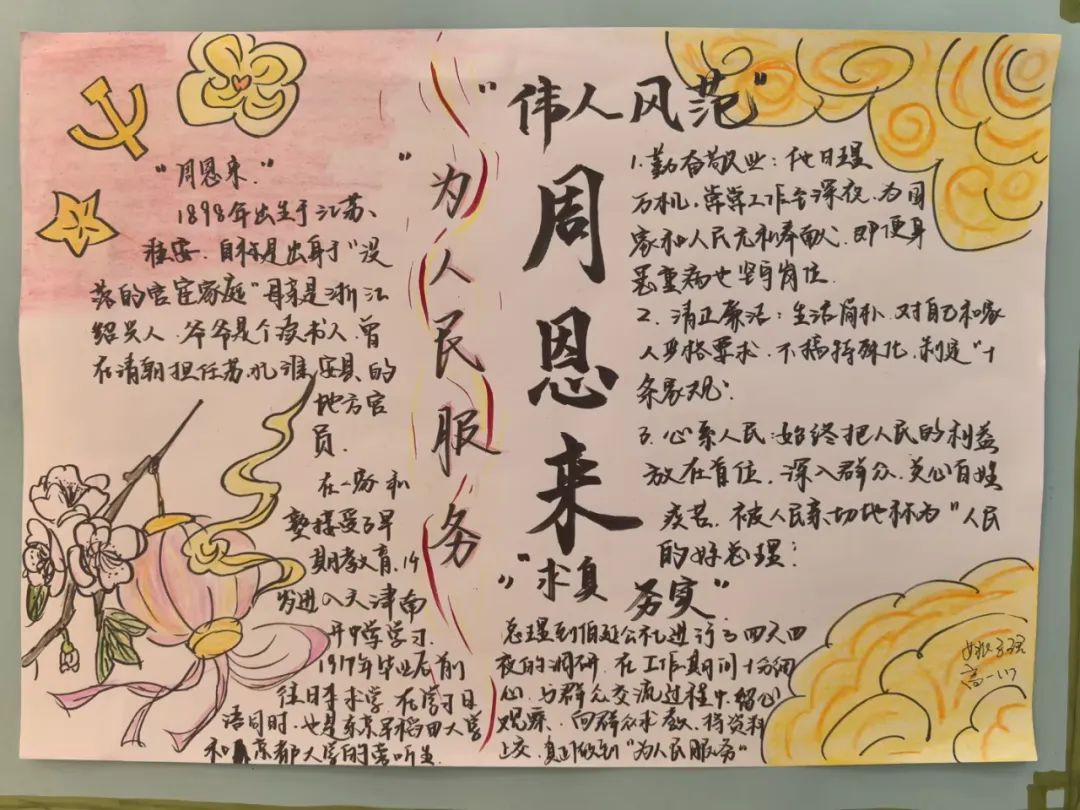 "伟人风范"
周恩来
"为人民服务"
"周恩来."
1898年出生于江苏、
淮安.自称是出身于"没
落的官宦家庭"母亲是浙江
绍兴人.爷爷是个读书人.曾
在清朝担任苏北淮安县的
地方官
员.
在家和
塾接受了早
期教育.14
岁进入天津南
开中学学习.
1917年毕业后前
往日本求学.在学习日
语同时.也是东京早稻田大学
和京都大学的旁听生.
1.勤奋敬业:他日理
万机,常常工作至深夜.为国
家和人民无私奉献.即便身
患重病也坚守岗位.
2.清正廉洁:生活简朴.对自己和家
人严格要求.不搞特殊化.制定"十
条家规".
3.心系人民:始终把人民的利益
放在首位.深入群众.关心百姓
疾苦.被人民亲切地称为"人民
的好总理;
"求真务实"
总理到伯延公社进行了四天四
夜的调研.在工作期间十分细
心.与群众交流过程中.留心
观察.向群众求教.将资料
上交.真正做到"为人民服务"
高一17